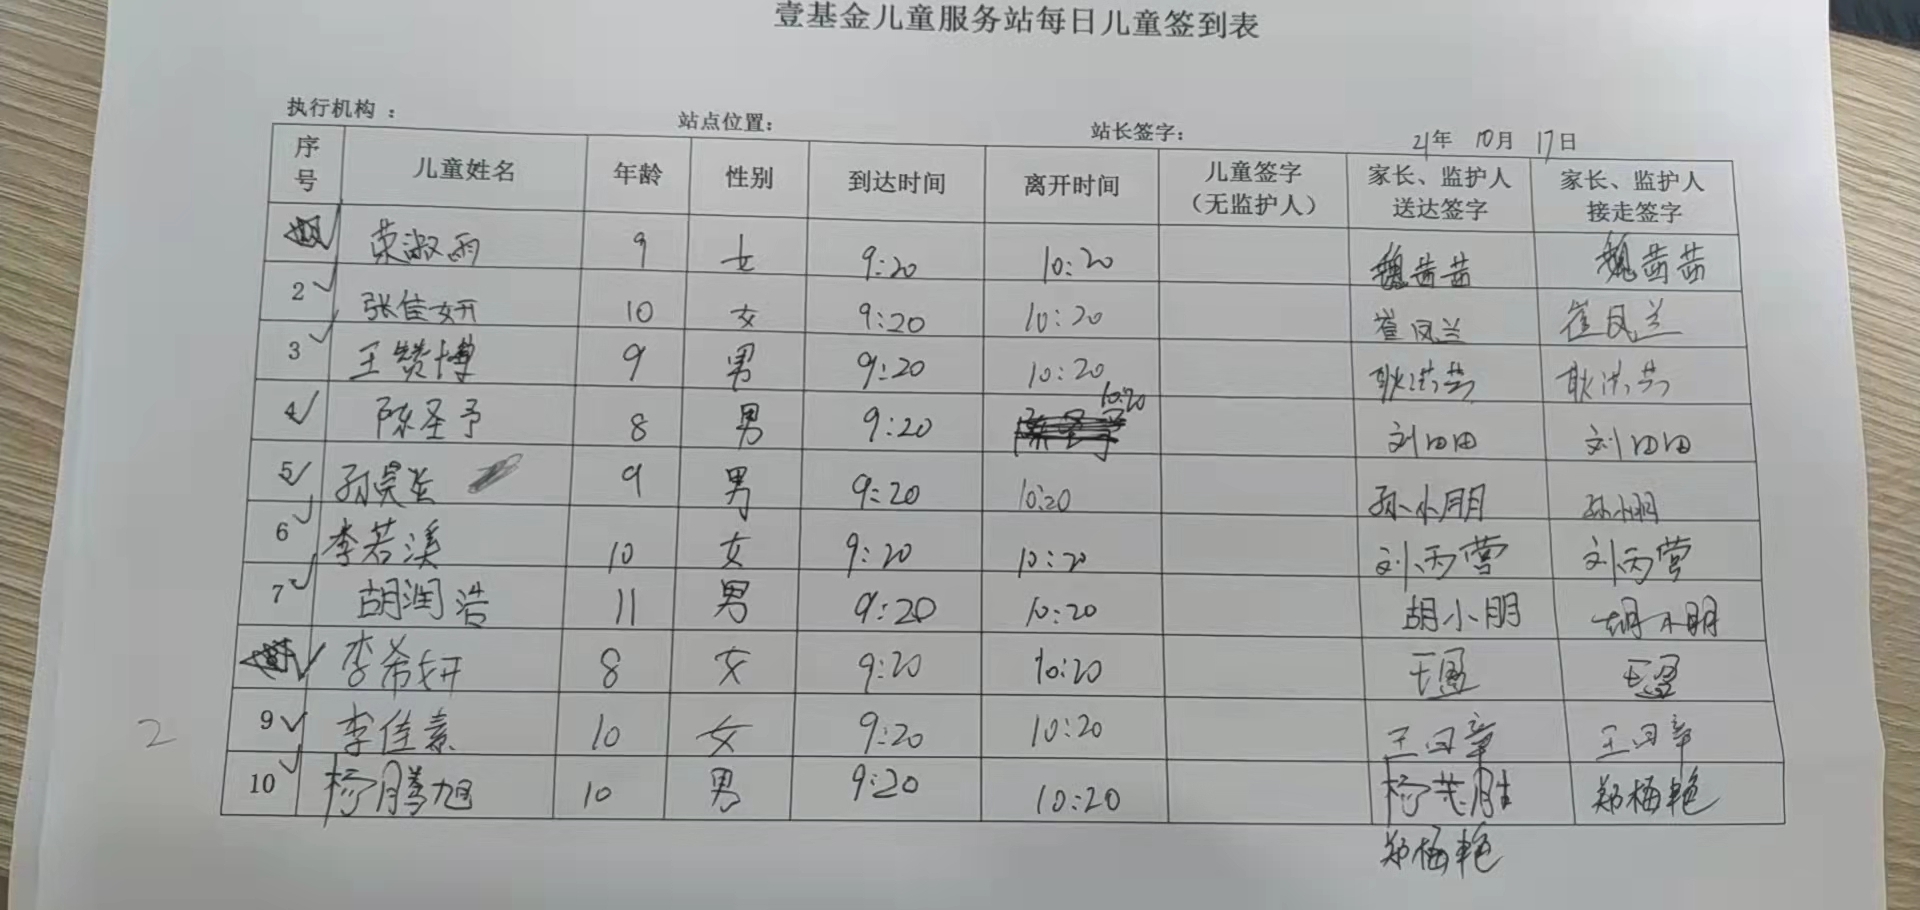 壹基金儿童服务站每日儿童签到表
执行机构： 站点位置： 站长签字： 21年 10月 17日
序号 儿童姓名 年龄 性别 到达时间 离开时间 儿童签字（无监护人） 家长、监护人送达签字 家长、监护人接走签字
荣淑雨 9 女 9:20 10:20 魏茜茜 魏茜茜
2 张佳妍 10 女 9:20 10:20 崔凤兰 崔凤兰
3 王赞博 9 男 9:20 10:20 耿洪芸 耿洪芸
4 陈圣予 8 男 9:20 10:20 刘田田 刘田田
5 孙昊 9 男 9:20 10:20 孙小朋 孙小朋
6 李若溪 10 女 9:20 10:20 刘丙营 刘丙营
7 胡润浩 11 男 9:20 10:20 胡小朋 胡小朋
李希妍 8 女 9:20 10:20 王盈 王盈
2 9 李佳素 10 女 9:20 10:20 王曰章 王曰章
10 杨腾旭 10 男 9:20 10:20 杨茂胜 郑梅艳
郑梅艳